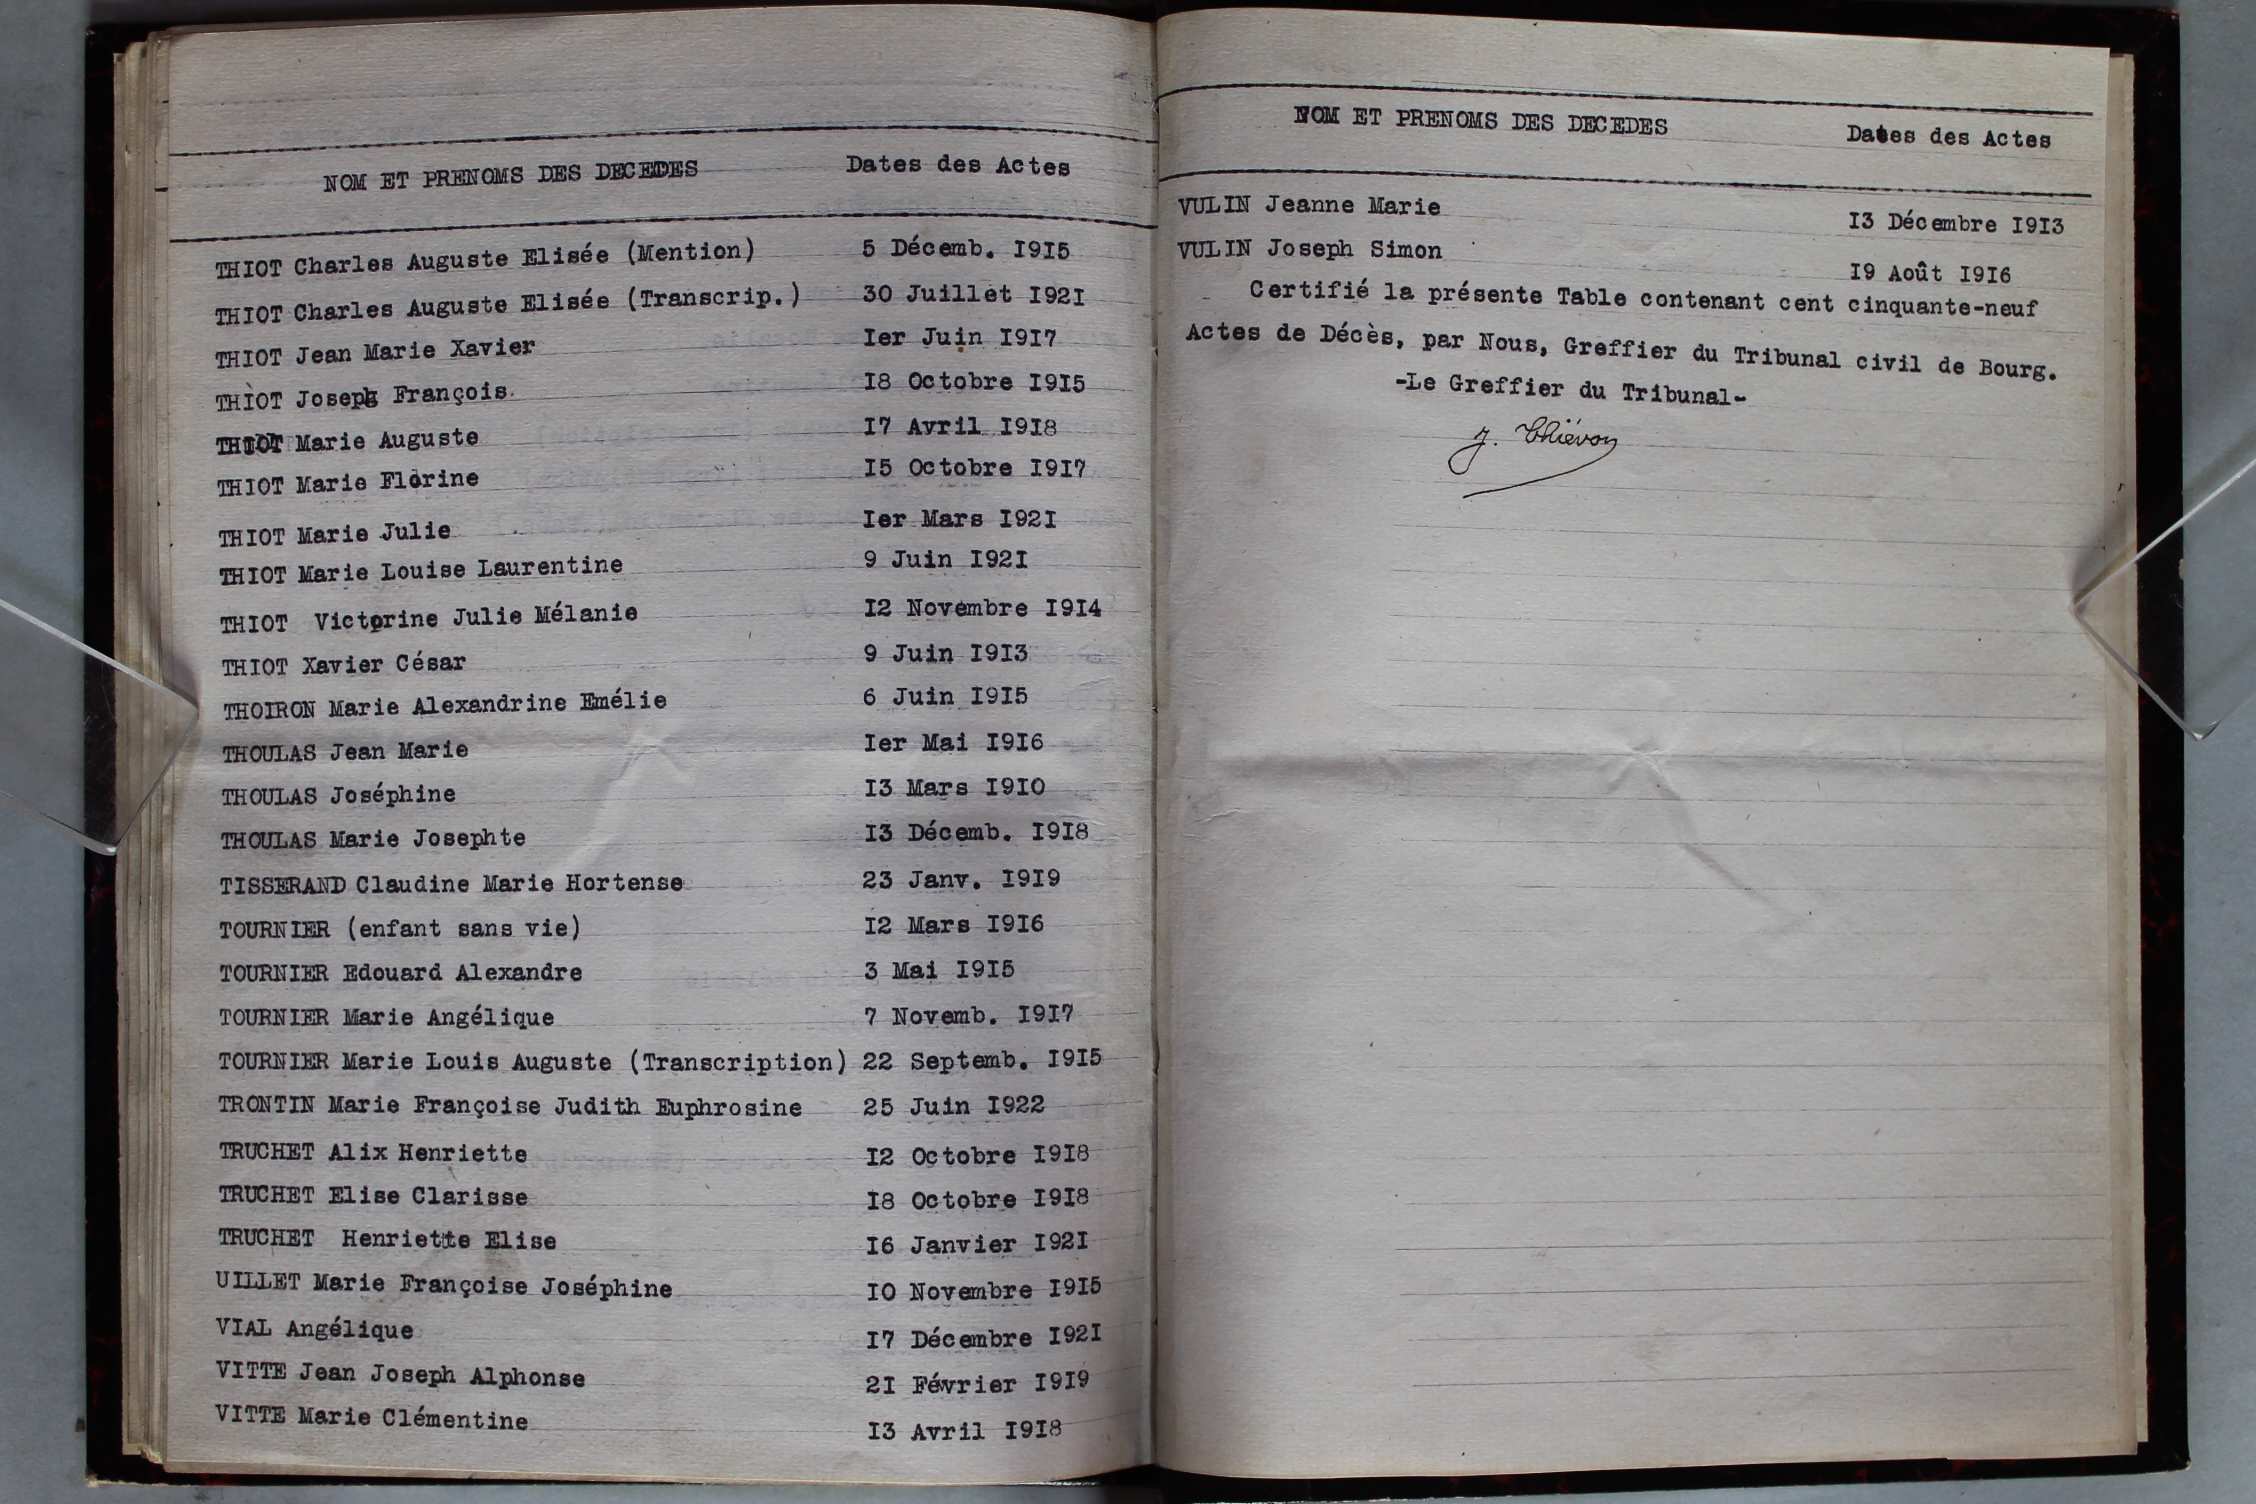 NOM ET PRENOMS DES DECEDES Dates des Actes
THIOT Charles Auguste Elisée (Mention) 5 Décemb. I9I5
THIOT Charles Auguste Elisée (Transcrip.) 30 Juillet I92I
THIOT Jean Marie Xavier Ier Juin I9I7
THIOT Joseph François. I8 Octobre I9I5
THIOT Marie Auguste I7 Avril I9I8
THIOT Marie Florine I5 Octobre I9I7
THIOT Marie Julie Ier Mars I92I
THIOT Marie Louise Laurentine 9 Juin I92I
THIOT Victorine Julie Mélanie I2 Novembre I9I4
THIOT Xavier César 9 Juin I9I3
THOIRON Marie Alexandrine Emélie 6 Juin I9I5
THOULAS Jean Marie Ier Mai I9I6
THOULAS Joséphine I3 Mars I9IO
THOULAS Marie Josephte I3 Décemb. I9I8
TISSERAND Claudine Marie Hortense 23 Janv. I9I9
TOURNIER (enfant sans vie) I2 Mars I9I6
TOURNIER Edouard Alexandre 3 Mai I9I5
TOURNIER Marie Angélique 7 Novemb. I9I7
TOURNIER Marie Louis Auguste (Transcription) 22 Septemb. I9I5
TRONTIN Marie Françoise Judith Euphrosine 25 Juin I922
TRUCHET Alix Henriette I2 Octobre I9I8
TRUCHET Elise Clarisse I8 Octobre I9I8
TRUCHET Henriette Elise I6 Janvier I92I
UILLET Marie Françoise Joséphine IO Novembre I9I5
VIAL Angélique I7 Décembre I92I
VITTE Jean Joseph Alphonse 2I Février I9I9
VITTE Marie Clémentine I3 Avril I9I8
NOM ET PRENOMS DES DECEDES Dates des Actes
VULIN Jeanne Marie I3 Décembre I9I3
VULIN Joseph Simon I9 Août I9I6
Certifié la présente Table contenant cent cinquante-neuf
Actes de Décès, par Nous, Greffier du Tribunal civil de Bourg.
-Le Greffier du Tribunal-
J. Thiévon